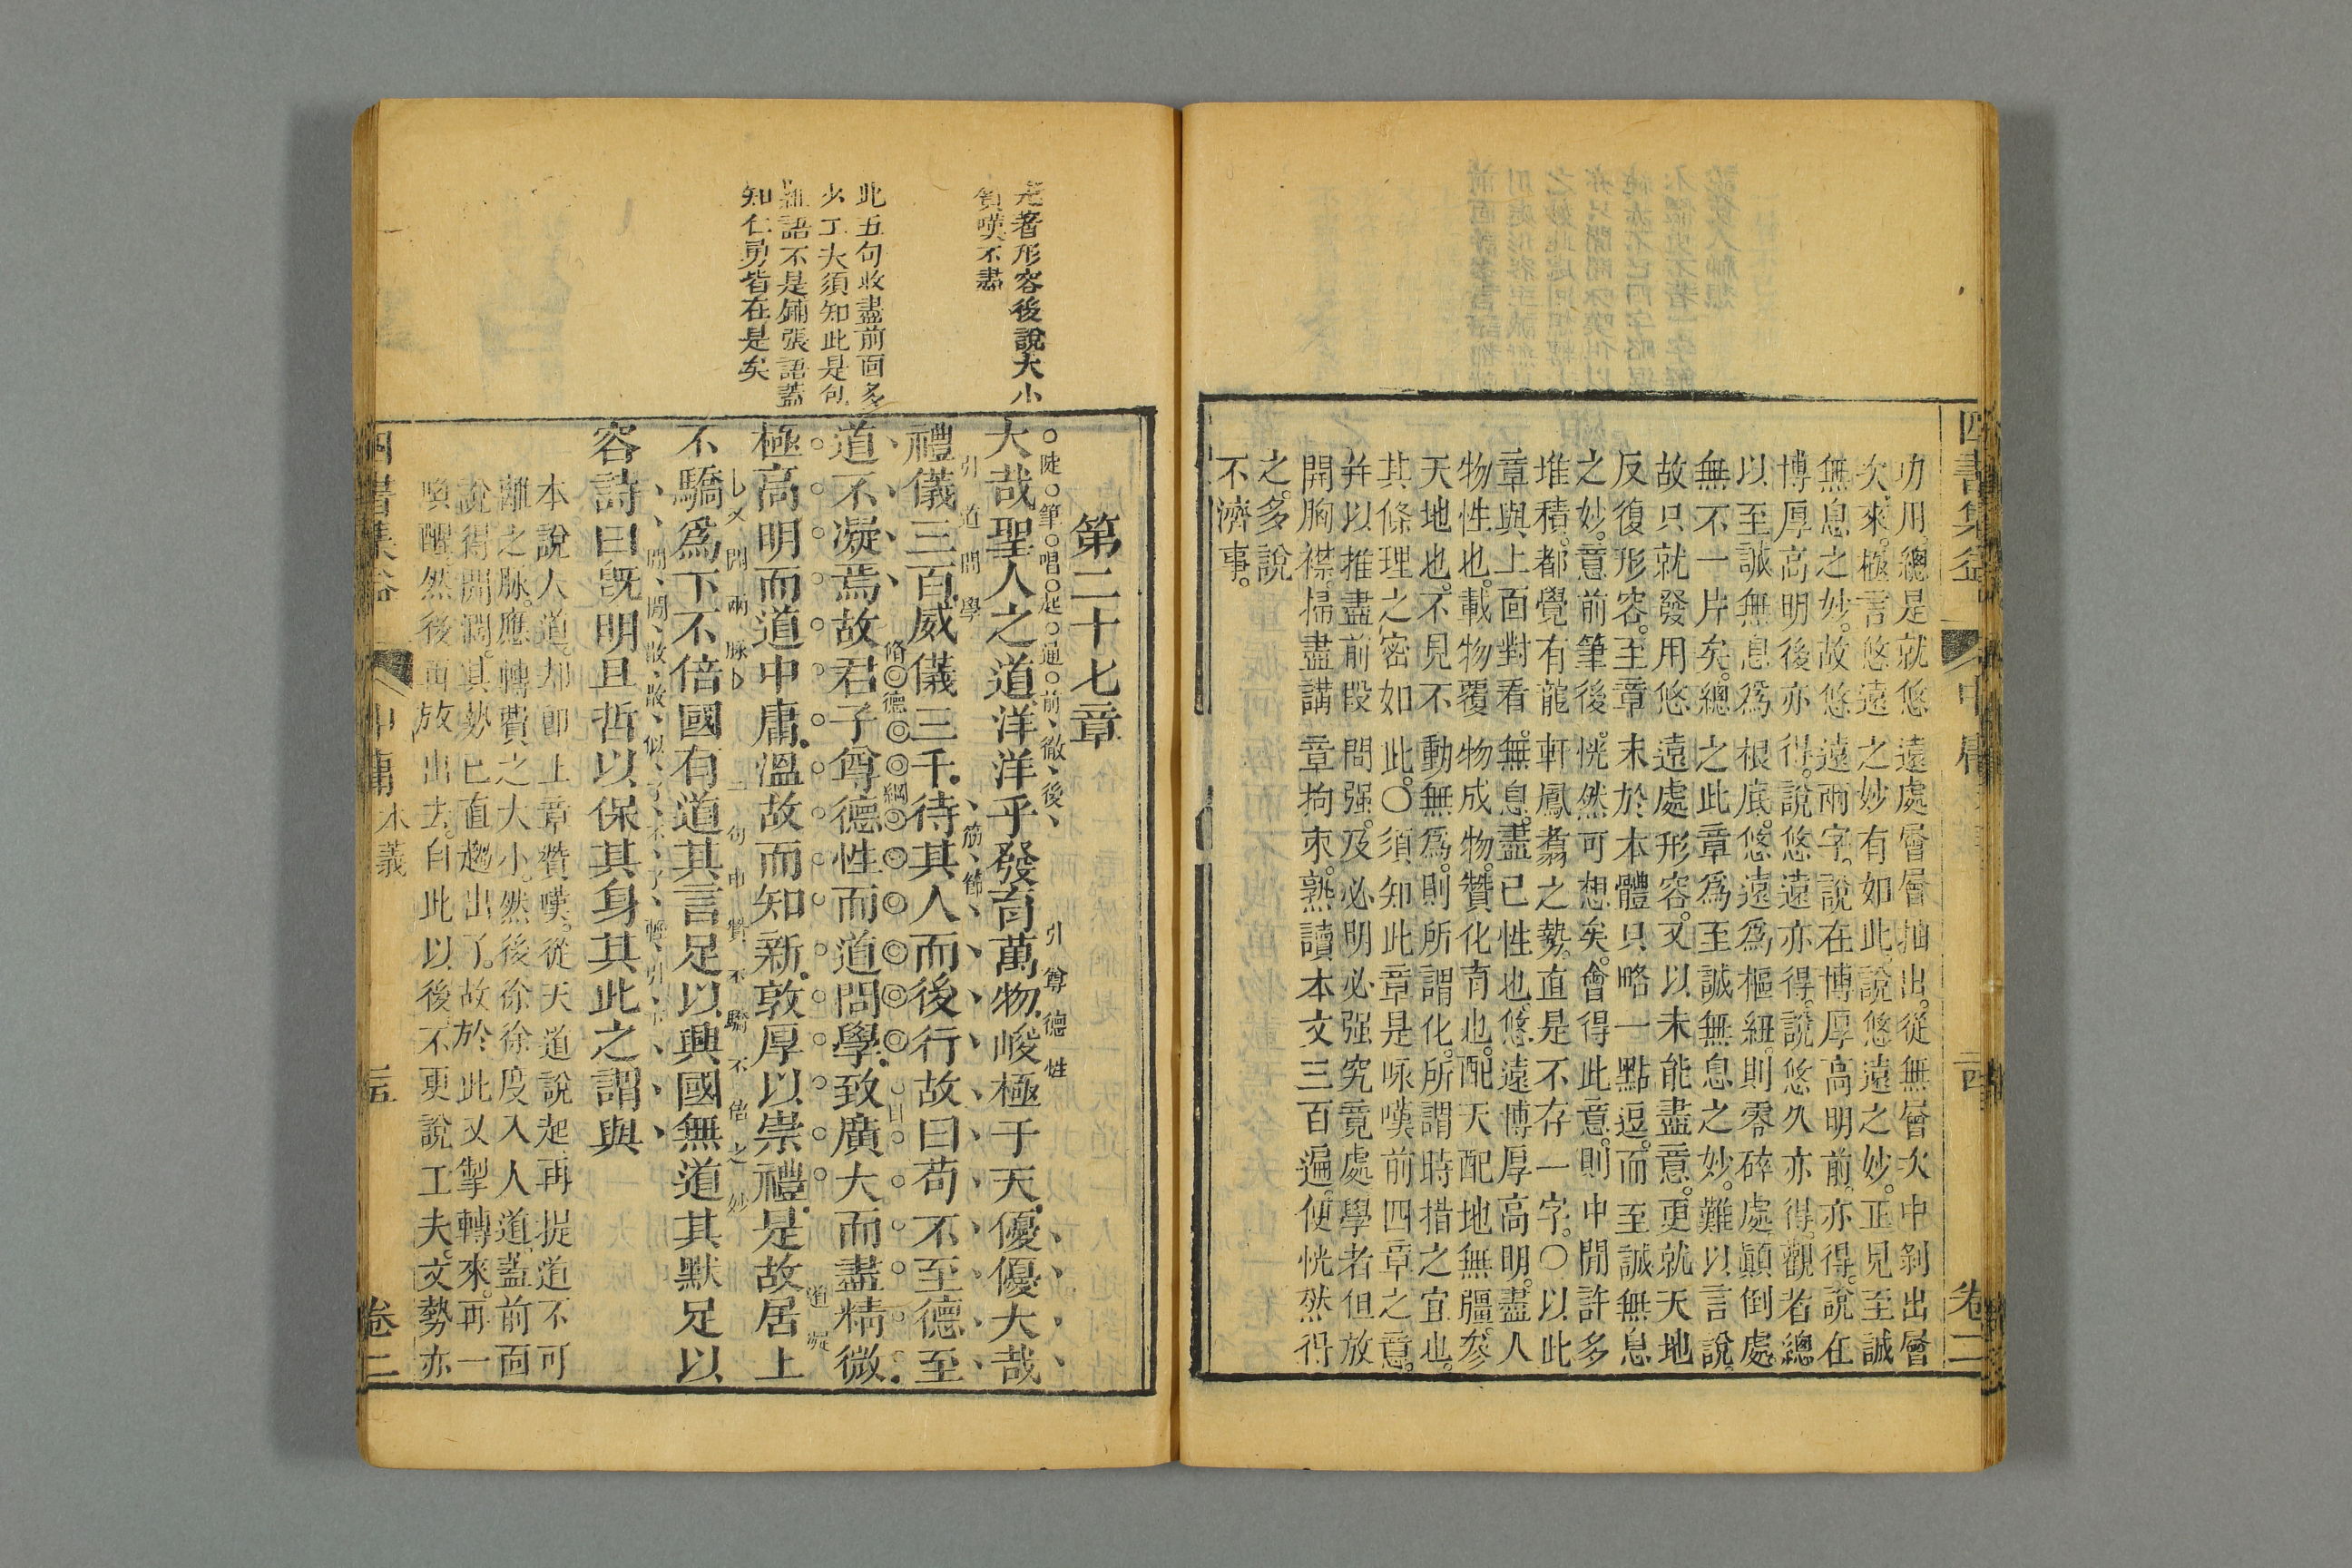 功用。總是就悠遠處層層抽出。從無層次中剝出層
次來。極言悠遠之妙有如此。說悠遠之妙。正見至誠
無息之妙。故悠遠兩字。說在博厚高明前。亦得。說在
博厚高明後亦得。說悠遠亦得。說悠久亦得。觀者總
以至誠無息爲根底。悠遠爲樞紐。則零碎處顛倒處。
無不一片矣。總之此章爲至誠無息之妙。難以言說。
故只就發用悠遠處形容。又以未能盡意。更就天地
反復形容。至章末於本體只略一點逗。而至誠無息
之妙。意前筆後。恍然可想矣。會得此意。則中間許多
堆積。都覺有龍軒鳳翥之勢。直是不存一字。○以此
章與上面對看。無息。盡已性也。悠遠博厚高明。盡人
物性也。載物覆物成物。贊化育也。配天配地無疆。參
天地也。不見不動無爲。則所謂化。所謂時措之宜也。
其條理之密如此。○須知此章是咏嘆前四章之意。
并以推盡前段問强。及必明必强究竟處學者但放
開胸襟。掃盡講章拘束。熟讀本文三百遍。便恍然得
之。多說
不濟事。
四書集 中庸 卷二
先著形容後說大小
贊嘆不盡
此五句收盡前面多
少工夫須知此是句
語不是鋪張語蓋
知仁勇皆在是矣
第二十七章
陡筆唱起通前徹後 引尊德性
大哉聖人之道洋洋乎發育萬物峻極于天優優大哉
引道問學 筋節
禮儀三百威儀三千待其人而後行故曰苟不至德至
脩德 綱 目
道不凝焉故君子尊德性而道問學致廣大而盡精微
道凝
極高明而道中庸溫故而知新敦厚以崇禮是故居上
又開兩脉 一句中贊不驕不倍之妙
不驕爲下不倍國有道其言足以興國無道其默足以
閒閒散散似了不了輕引下
容詩曰旣明且哲以保其身其此之謂與
本說人道。却卽上章贊嘆。從天道說起。再提道不可
離之脉。應轉費之大小。然後徐徐度入人道。蓋前面
說得開濶。其勢已直趨出了。故於此又掣轉來。再一
喚醒然後再放出去。自此以後不更說工夫。文勢亦
四書集 中庸 本義 卷二